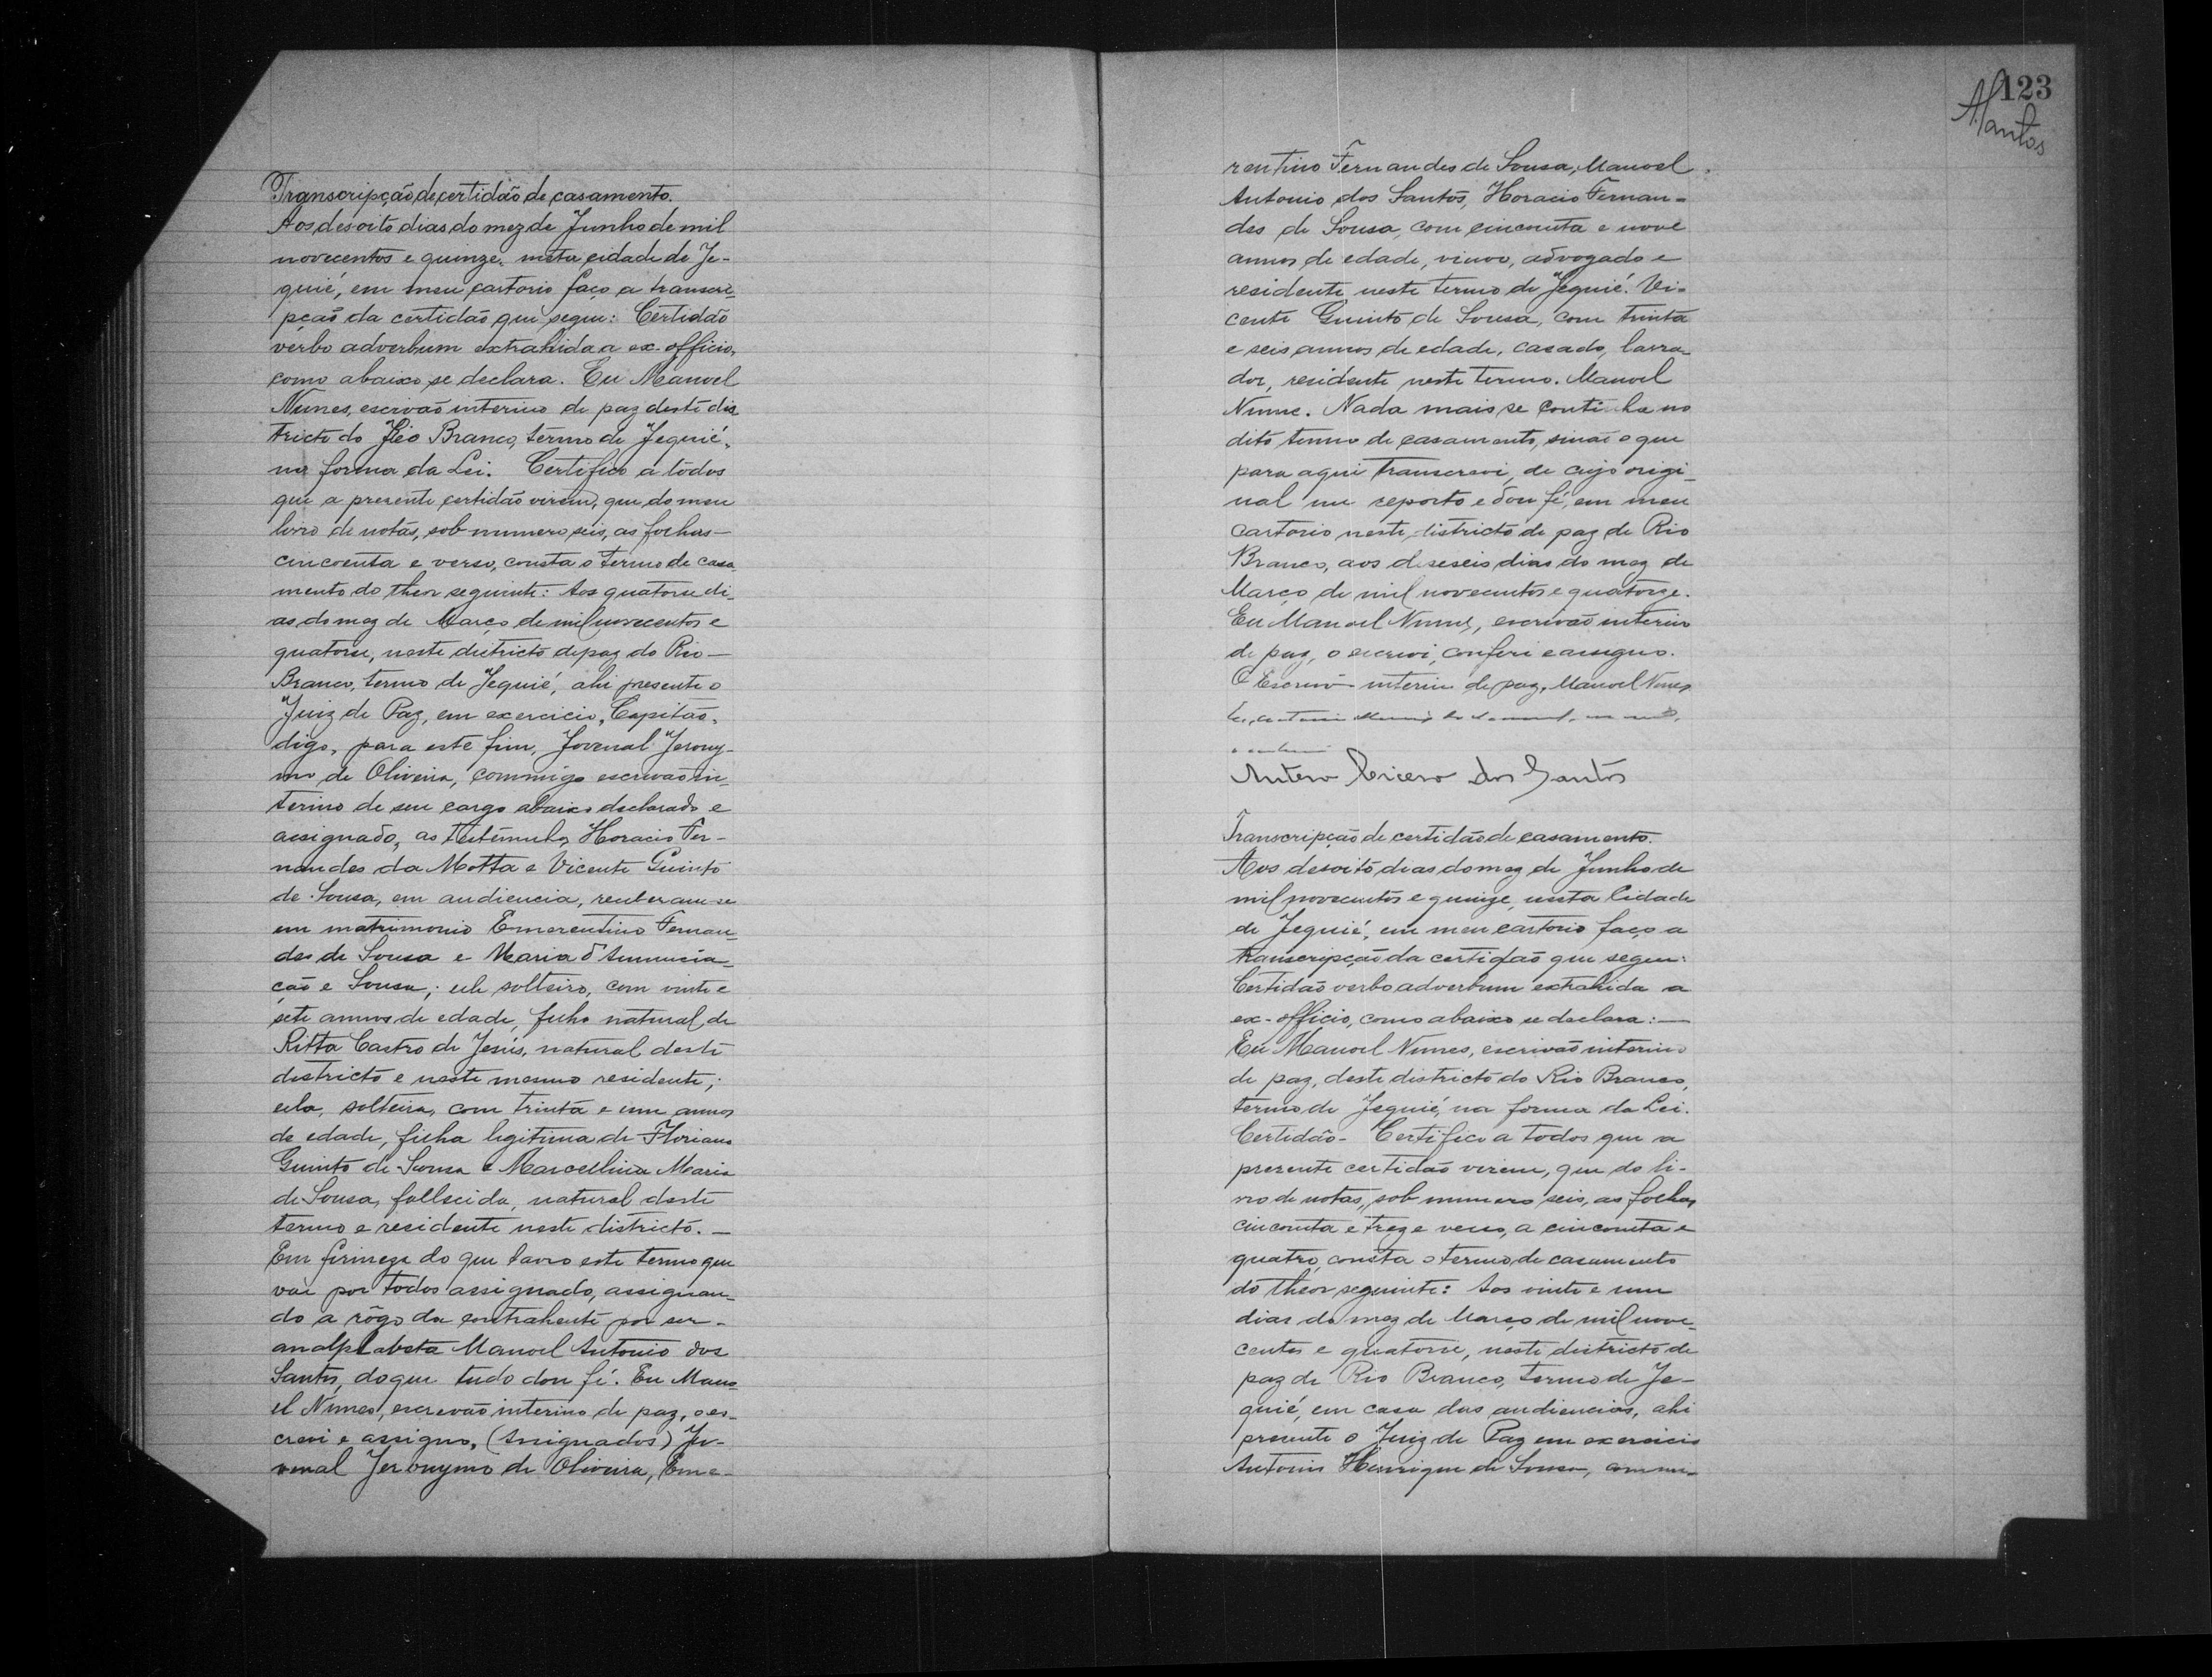 Transcripção de certidão de casamento.
Aos desoito dias do mez de Junho de mil
novecentos e quinze, nesta cidade de Je-
quié, em meu cartorio faço a transcri-
pção da certidão que segue: Certidão
verbo adverbum extrahida a ex-officio,
como abaixo se declara. Eu Manoel
Nunes, escrivão interino de paz deste dis
tricto do Rio Branco, termo de Jequié,
na forma da Lei. Certifico a todos
que a presente certidão virem, que do meu
livro de notas, sob numero seis, as folhas—
cincoenta e verso, consta o termo de casa-
mento do theor seguinte: Aos quatorse di-
as do mez de Março de mil novecentos e
quatorse, neste districto de paz do Rio—
Branco, termo de Jequié, ahi presente o
Juiz de Paz, em exercicio, Capitão,
digo, para este fim, Jovenal Jerony-
mo de Oliveira, commigo escrivão in-
terino de seu cargo abaixo declarado e
assignado, as testemunhs Horacio Fer-
nandes da Motta e Vicente Guinto
de Sousa, em audiencia, receberam-se
em matrimonio Emerentino Fernan-
des de Sousa e Maria d'Annuncia-
ção e Sousa; elle solteiro, com vinte e
sete annos de edade, filho natural de
Ritta Castro de Jesús, natural deste
districto e neste mesmo residente;
ella, solteira, com trinta e um annos
de edade, filha legitima de Floriano
Guinto de Sousa e Marcellina Maria
de Sousa, fallecida, natural deste
termo e residente neste districto.—
Em firmeza do que lavro este termo que
vai por todos assignado, assignan-
do a rôgo da contrahente por ser-
analphabeta Manoel Antonio dos
Santos, do que tudo dou fé. Eu Mano-
el Nunes, escrevão interino de paz, o es-
crevi e assigno, (Assignados) Jo-
venal Jeronymo de Oliveira, Eme-
123
rentino Fernandes de Sousa, Manoel
Antonio dos Santos, Horacio Fernan-
des de Sousa, com cincoenta e nove
annos de edade, viuvo, advogado e
residente neste termo de Jequié. Vi-
cente Guinto de Sousa, com trinta
e seis annos de edade, casado, lavra-
dor, residente neste termo. Manoel
Nunes. Nada mais se continha no
dito termo de casamento, sinão o que
para aqui transcrevi, de cujo origi-
nal me reporto e dou fé, em meu
cartorio neste districto de paz de Rio
Branco, aos deseseis dias do mez de
Março de mil novecentos e quatorze.
Eu Manoel Nunes, escrivão interino
de paz, o escrevi, conferi e assigno.
O Escrivão interino de paz, Manoel Nunes
Antero Cicero dos Santos
Transcripção de certidão de casamento.
Aos desoito dias do mez de Junho de
mil novecentos e quinze, nesta Cidade
de Jequié, em meu cartorio faço a
transcripção da certidão que segue:
Certidão verbo adverbum extrahida a
ex-officio, como abaixo se declara:—
Eu Manoel Nunes, escrivão interino
de paz, deste districto do Rio Branco,
termo de Jequié, na forma da Lei.
Certidão— Certifico a todos que a
presente certidão virem, que do li-
vro de notas, sob numero seis, as folhas
cincoenta e treze verso, a cincoenta e
quatro, consta o termo de casamento
do theor seguinte: Aos vinte e um
dias do mez de Março de mil nove-
centos e quatorse, neste districto de
paz de Rio Branco, termo de Je-
quié, em casa das audiencias, ahi
presente o Juiz de Paz em exercicio
Antonio Henrique de Sousa, commi-